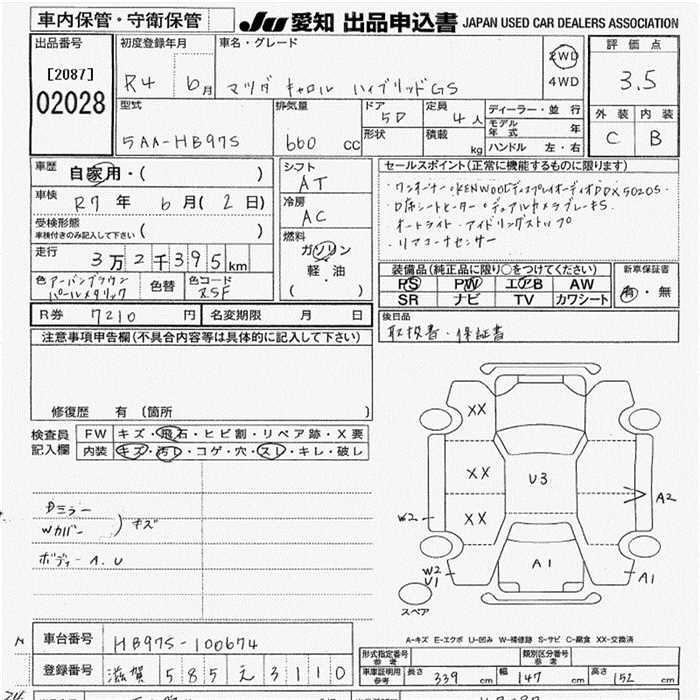 車内保管・守衛保管
JU 愛知 出品申込書 JAPAN USED CAR DEALERS ASSOCIATION
出品番号
[2087]
02028
初度登録年月
R4 6月
車名・グレード
マツダ キャロル ハイブリッドGS
2WD
4WD
評価点
3.5
外装 内装
C B
型式
5AA-HB97S
排気量
660 cc
ドア
5D
形状
定員
4人
積載
kg
ディーラー・並行
モデル年式 年
ハンドル 左・右
車歴
自家用・( )
車検
R7年 6月(2日)
受検形態
車検付きのみ記入して下さい ( )
走行
3万2千395km
色 アーバンブラウンパールメタリック
色替
色コード
ZSF
シフト
AT
冷房
AC
燃料
ガソリン
軽・油
( )
セールスポイント(正常に機能するものに限ります)
・ワンオーナー・KENWOODディスプレイオーディオDDX5020S・
・D席シートヒーター・デュアルカメラブレーキS・
オートライト・アイドリングストップ
・リアコーナーセンサー
装備品(純正品に限り○をつけてください)
PS PW エアB AW
SR ナビ TV カワシート
新車保証書
有・無
R券 7210円
名変期限 月 日
後日品
取扱書・保証書
注意事項申告欄(不具合内容等は具体的に記入して下さい)
修復歴 有 〔箇所 〕
検査員記入欄
FW キズ・飛石・ヒビ割・リペア跡・X要
内装 キズ・汚レ・コゲ・穴・スレ・キレ・破レ
Dミラー
Wカバー
)キズ
ボディー A.U
XX
XX
XX
U3
A1
A2
W2
W2
U1
A1
スペア
A-キズ E-エクボ U-凹み W-補修跡 S-サビ C-腐食 XX-交換済
車台番号
HB97S-100674
登録番号
滋賀 585 え 3110
形式指定番号 参考
類別区分番号 参考
車庫証明用 参考
長さ 339 cm
幅 147 cm
高さ 152 cm